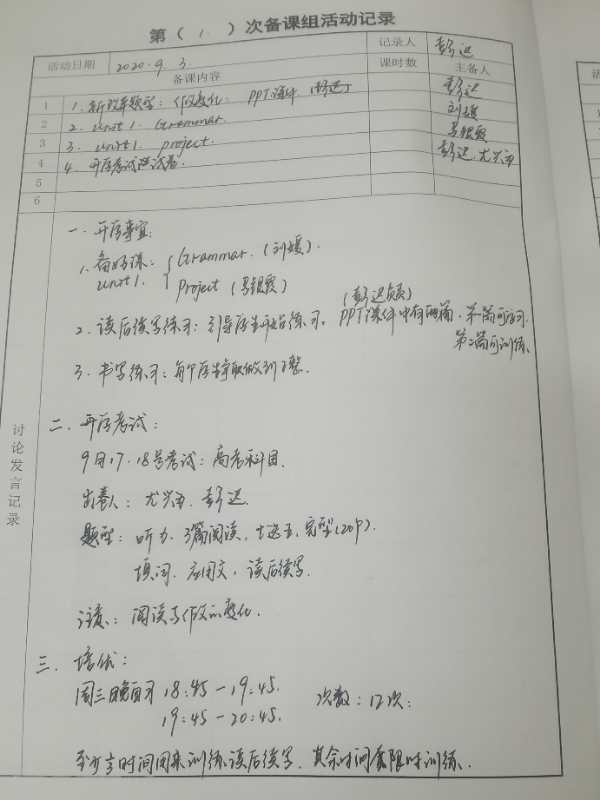 第（ 1 ）次备课组活动记录
活动日期 2020.9.3 记录人 彭迟
备课内容 课时数 主备人
1 1. 新改革题型：作文变化 PPT课件（彭迟） 彭迟
2 2. unit 1. Grammar. 刘媛
3 3. unit 1. project.
4 4. 开学考试 试卷. 彭迟. 尤兴雨
5
6
讨论发言记录
一. 开学事宜：
1. 备好课： Grammar.（刘媛）.
unit 1. Project
（彭迟负责）
2. 读后续写练习：引导学生开始练习. PPT课件中有两篇. 第一篇可
第二篇可训练.
3. 书写练习：每个学生争取做到工整.
二. 开学考试：
9月17. 18号考试：高考科目.
出卷人： 尤兴雨. 彭迟.
题型： 听力. 3篇阅读. 七选五. 完型(20个)
填词. 应用文. 读后续写.
注意： 阅读与作文的变化.
三. 培优：
周三晚自习 18:45 - 19:45. 次数：12次：
19:45 - 20:45.
至少 时间用来训练读后续写. 其余时间 限时训练.